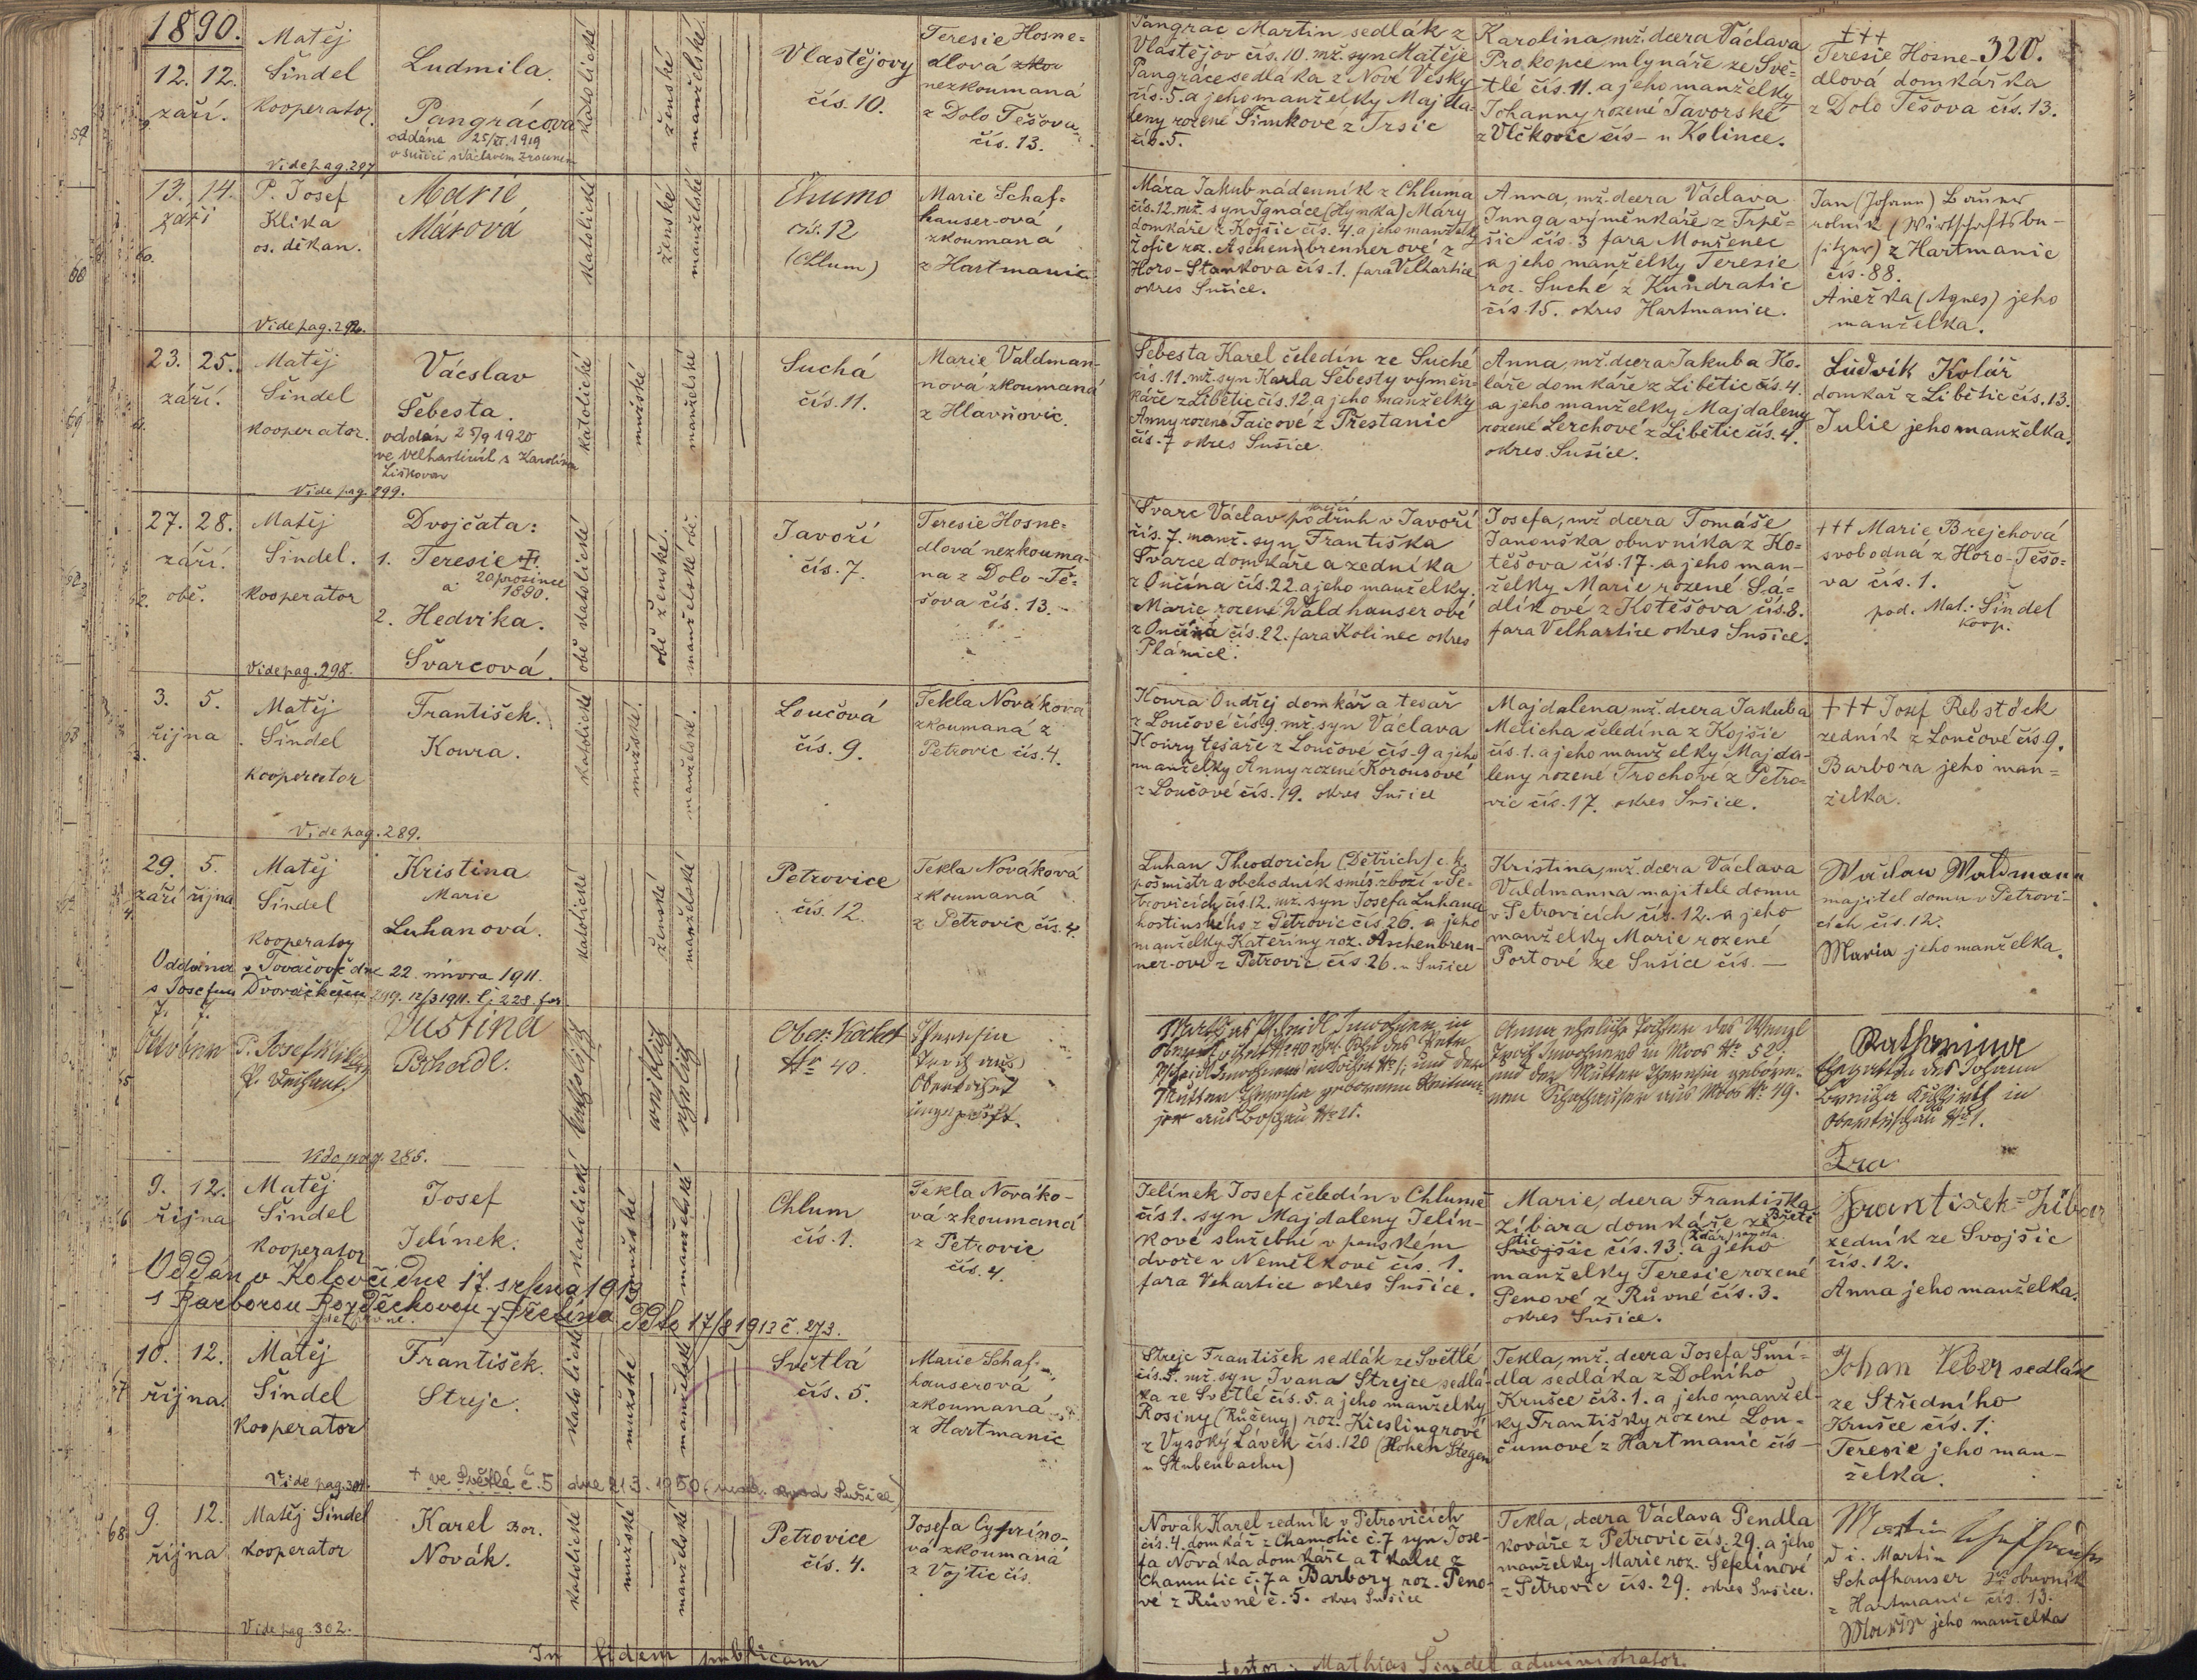 1890.
320.
12. 12.
září.
Matěj
Šindel
kooperator.
Vide pag. 297
Ludmila.
Pangrácova
oddána 25/XI. 1919
v Sušici s Václavem
katolické
ženské
manželské
Vlastějovy
čís. 10.
Teresie Hosne-
dlová
nezkoumaná
z Dolo Těšova
čís. 13.
Pangrac Martin sedlák z
Vlastějov čís. 10. mž. syn Matěje
Pangrace sedláka z Nové Vesky
čís. 5. a jeho manželky Majda-
leny rozené Šimkove z Trsic
čís. 5.
Karolina, mž. dcera Václava
Prokopce mlynáře ze Svě-
tlé čís. 11. a jeho manželky
Johanny rozené Javorské
z Vlčkovic čís – u Kolince.
+++
Teresie Hosne-
dlová domkářka
z Dolo Těšova čís. 13.
13. 14.
září
60.
P. Josef
Klika
os. děkan.
Vide pag. 292.
Marie
Márová
katolické
ženské
manželské
Chumo
čís. 12
(Chlum)
Marie Schaf-
hauser-ová
zkoumaná
z Hartmanic
Mára Jakub nádenník z Chluma
čís. 12. mž. syn Ignáce (Hynka) Máry
domkáře z Kojšic čís. 4. a jeho manželky
Žofie roz. Aschenbrenner ové z
Horo-Stankova čís. 1. fara Velhartice
okres Sušice.
Anna, mž. dcera Václava
Junga výměnkáře z Trpě-
šic čís. 3 fara Mouřenec
a jeho manželky Teresie
roz. Suché z Kundratic
čís 15. okres Hartmanice.
Jan (Johann) Bauner
rolník (Wirthschaftsbe-
sitzer) z Hartmanic
čís. 88.
Anežka (Agnes) jeho
manželka.
23. 25.
září.
Matěj
Šindel
kooperator.
Vide pag. 299.
Vácslav
Šebesta.
oddán 25/9 1920
ve Velharticích s Karolínou
Liškovou
katolické
mužské
manželské
Suchá
čís. 11.
Marie Valdman-
nová zkoumaná
z Hlavňovic.
Šebesta Karel čeledín ze Suché
čís. 11. mž. syn Karla Šebesty výměn-
káře z Libětic čís. 12. a jeho manželky
Anny rozené Faicové z Přestanic
čís. 7 okres Sušice.
Anna, mž. dcera Jakuba Ko-
láře domkáře z Libětic čís. 4.
a jeho manželky Majdaleny
rozené Lerchové z Libětic čís. 4.
okres Sušice.
Ludvík Kolář
domkař z Libětic čís. 13.
Julie jeho manželka.
27. 28.
září.
obě.
Matěj
Šindel.
kooperator
Vide pag. 298.
Dvojčata:
1. Teresie †.
20 prosince
1890.
a
2. Hedvika.
Švarcová.
obě katolické
obě ženské.
manželské obě.
Javoří
čís. 7.
Teresie Hosne-
dlová nezkouma-
na z Dolo-Tě-
šova čís. 13.
Švarc Václav podruh v Javoří
čís. 7. manž. syn Františka
Švarce domkáře a zedníka
z Ončína čís. 22. a jeho manželky
Marie rozené Waldhauser ové
z Ončína čís. 22. fara Kolinec okres
Planice.
Josefa, mž dcera Tomáše
Janouška obuvníka z Ko-
těšova čís. 17. a jeho man-
želky Marie rozené Sá-
dlíkové z Kotěšova čís. 8.
fara Velhartice okres Sušice.
+++ Marie Brejchová
svobodná z Horo-Těšo-
va čís. 1.
pod. Mat. Šindel
koop.
3. 5.
října
Matěj
Šindel
kooperator
Vide pag. 289.
František.
Koura.
katolické
mužské.
manželské.
Loučová
čís. 9.
Tekla Nováková
zkoumaná z
Petrovic čís. 4.
Koura Ondřej domkář a tesař
z Loučové čís 9. mž. syn Václava
Koury tesaře z Loučové čís. 9 a jeho
manželky Anny rozené Korousové
z Loučové čís. 19. okres Sušice
Majdalena mž. dcera Jakuba
Melicha čeledína z Kojšic
čís. 1. a jeho manželky Majda-
leny rozené Trochové z Petro-
vic čís. 17. okres Sušice.
+++ Josef Rebstöck
zedník z Loučové čís 9.
Barbora jeho man-
želka.
29. 5.
září října
Matěj
Šindel
kooperator
Kristina
Marie
Luhanová.
Oddána v Tovačově dne 22. února 1911.
s Josefem Dvořáčkem
katolické
ženské
manželské
Petrovice
čís. 12.
Tekla Nováková
zkoumaná
z Petrovic čís. 4.
Luhan Theodorich (Dětřich) c. k.
pošmistr a obchodník smíš. zboží v Pe-
trovicích čís. 12. mž. syn Josefa Luhana
hostinského z Petrovic čís 26. a jeho
manželky Kateřiny roz. Aschenbren-
ner-ové z Petrovic čís 26. u Sušice
Kristina, mž. dcera Václava
Valdmanna majitele domu
v Petrovicích čís. 12. a jeho
manželky Marie rozené
Portové ze Sušice čís. —
Waclaw Waldmann
majitel domu v Petrovi-
cích čís. 12.
Maria jeho manželka.
7. 7.
Október
P. Josef Klika
Vide pag. 286.
Justina
Pscheidl.
katholisch
weiblich
ehelich
Ober-Kochet
№ 40.
Theresia
Oberkochet
ungeprüft.
Anna eheliche Tochter des Wenzl
in Moos № 52
und der Mutter Theresia gebore-
nen Schafhauser aus Moos № 19.
Katharina
Ehegattin des Johann
9. 12.
října
Matěj
Šindel
kooperator
Josef
Jelínek.
Oddán v Kolovči dne 17. srpna 1913
s Barborou
katolické
mužské
manželské
Chlum
čís. 1.
Tekla Nováko-
vá zkoumaná
z Petrovic
čís. 4.
Jelínek Josef čeledín v Chlumě
čís 1. syn Majdaleny Jelín-
kové služebné v panském
dvoře v Nemělkově čís. 1.
fara Vehartice okres Sušice.
Marie, dcera Františka
Zíbara domkáře ze
Svojšic čís. 13. a jeho
manželky Teresie rozené
Penové z Růvné čís. 3.
okres Sušice.
František Zíbar
zedník ze Svojšic
čís. 12.
Anna jeho manželka.
10. 12.
října.
Matěj
Šindel
kooperator
Vide pag. 301.
František.
Strejc.
† ve Světlé č. 5 dne 21.3. 1950
katolické
mužské
manželské
Světlá
čís. 5.
Marie Schaf-
hauserová
zkoumaná
z Hartmanic
Strejc František sedlák ze Světlé
čís. 5. mž. syn Ivana Strejce sedlá-
ka ze Světlé čís. 5. a jeho manželky
Rosiny (Růženy) roz. Kieslingrové
z Vysoký Lávek čís. 120 (Hohen Stegen
u Stubenbachu)
Tekla, mž. dcera Josefa Smí-
dla sedláka z Dolního
Krušce čís. 1. a jeho manžel-
ky Františky rozené Lou-
čumové z Hartmanic čís –
Johan Veber sedlák
ze Středního
Krušce čís. 1.
Teresie jeho man-
želka.
68.
9. 12.
října
Matěj Šindel
kooperator
Vide pag 302.
Karel Bor.
Novák.
katolické
mužské
manželské
Petrovice
čís. 4.
Josefa Cyprino-
vá zkoumaná
z Vojtic čís.
Novák Karel zedník v Petrovicích
čís. 4. domkář z Chamotic č. 7 syn Jose-
fa Nováka domkáře a tkalce z
Chamutic č. 7 a Barbory roz. Peno-
vé z Růvné č. 5. okres Sušice
Tekla, dcera Václava Pendla
kováře z Petrovic čís. 29. a jeho
manželky Marie roz. Šefelínové
z Petrovic čís. 29. okres Sušice.
Martin Schafhauser
t. i. Martin
Schafhauser obuvník
z Hartmanic čís. 13.
Marie jeho manželka
In fidem publicam
testor: Mathias Šindel administrator.